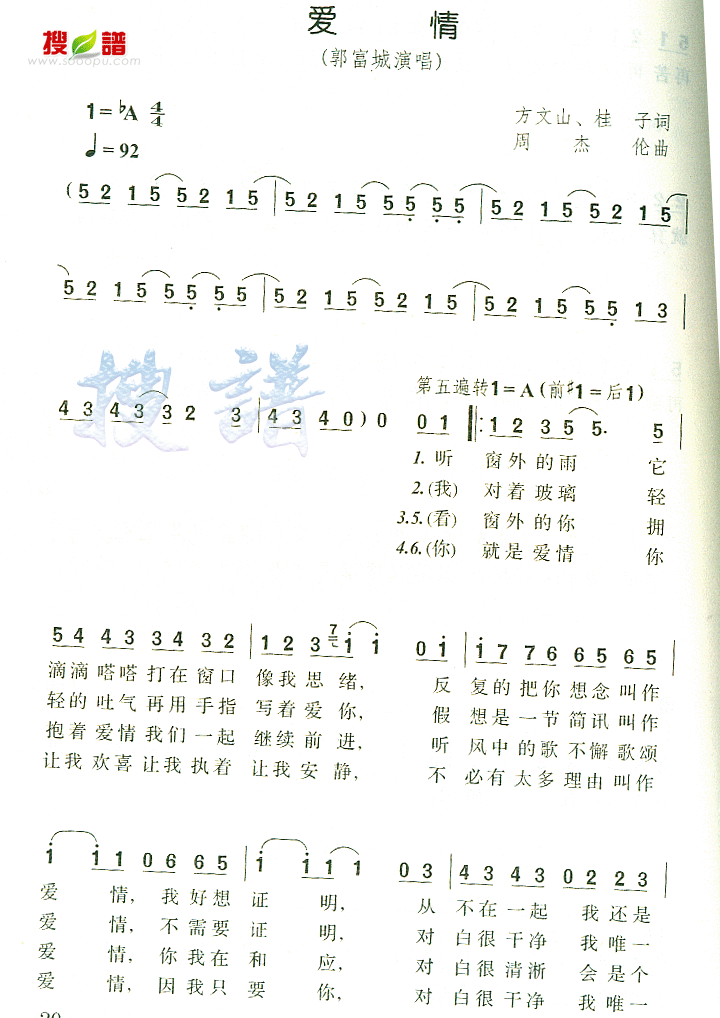 爱 情
搜譜
www.sooopu.com
(郭富城演唱)
1=♭A 4/4
方文山、桂 子词
♩=92
周 杰 伦曲
(5 2 1 5 5 2 1 5 | 5 2 1 5 5 5 5 5 | 5 2 1 5 5 2 1 5 |
5 2 1 5 5 5 5 5 | 5 2 1 5 5 2 1 5 | 5 2 1 5 5 5 1 3 |
第五遍转1=A(前♯1=后1)
4 3 4 3 3 2 3 | 4 3 4 0) 0 0 1 ‖: 1 2 3 5 5· 5 |
1. 听 窗外的雨 它
2.(我) 对着玻璃 轻
3.5.(看) 窗外的你 拥
4.6.(你) 就是爱情 你
5 4 4 3 3 4 3 2 | 1 2 3 7 i i 0 i | i 7 7 6 6 5 6 5 |
滴滴嗒嗒打在窗口 像我思绪, 反 复的把你想念叫作
轻的吐气再用手指 写着爱你, 假 想是一节简讯叫作
抱着爱情我们一起 继续前进, 听 风中的歌不懈歌颂
让我欢喜让我执着 让我安静, 不 必有太多理由叫作
i i 1 1 0 6 6 5 | i i 1 1 1 0 3 | 4 3 4 3 0 2 2 3 |
爱 情, 我好想 证 明, 从 不在一起 我还是
爱 情, 不需要 证 明, 对 白很干净 我唯一
爱 情, 你我在 和 应, 对 白很清淅 会是个
爱 情, 因我只 要 你, 对 白很干净 我唯一